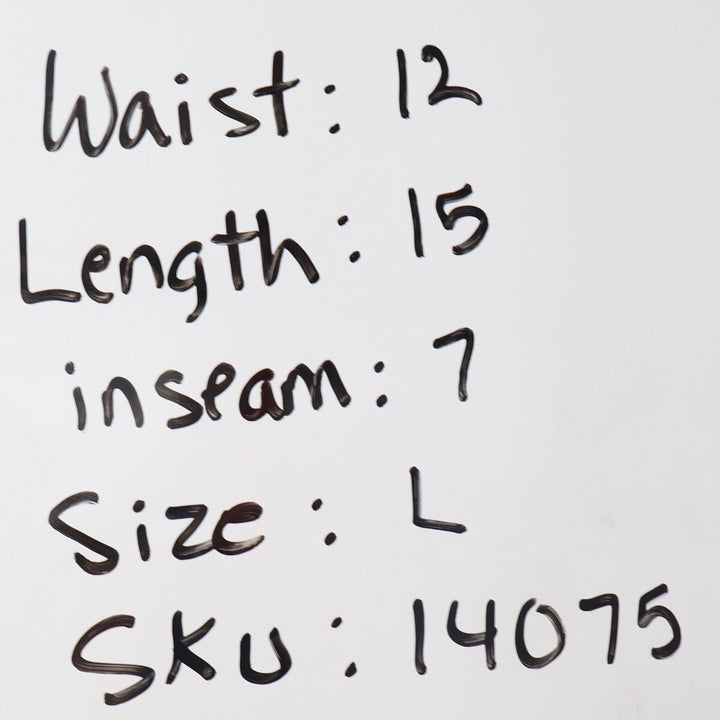 Waist: 12
Length: 15
inseam: 7
Size: L
SKU: 14075